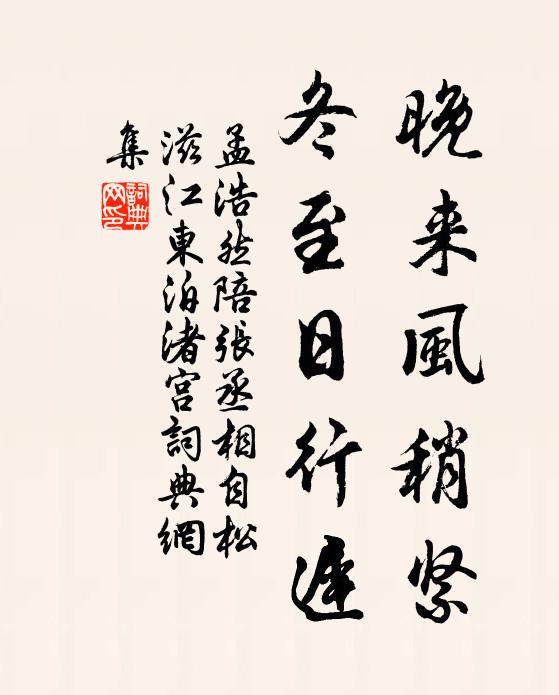 晚来風稍緊
冬至日行遲
孟浩然陪張丞相自松
滋江東泊渚宮詞典網
集
詞典
网印